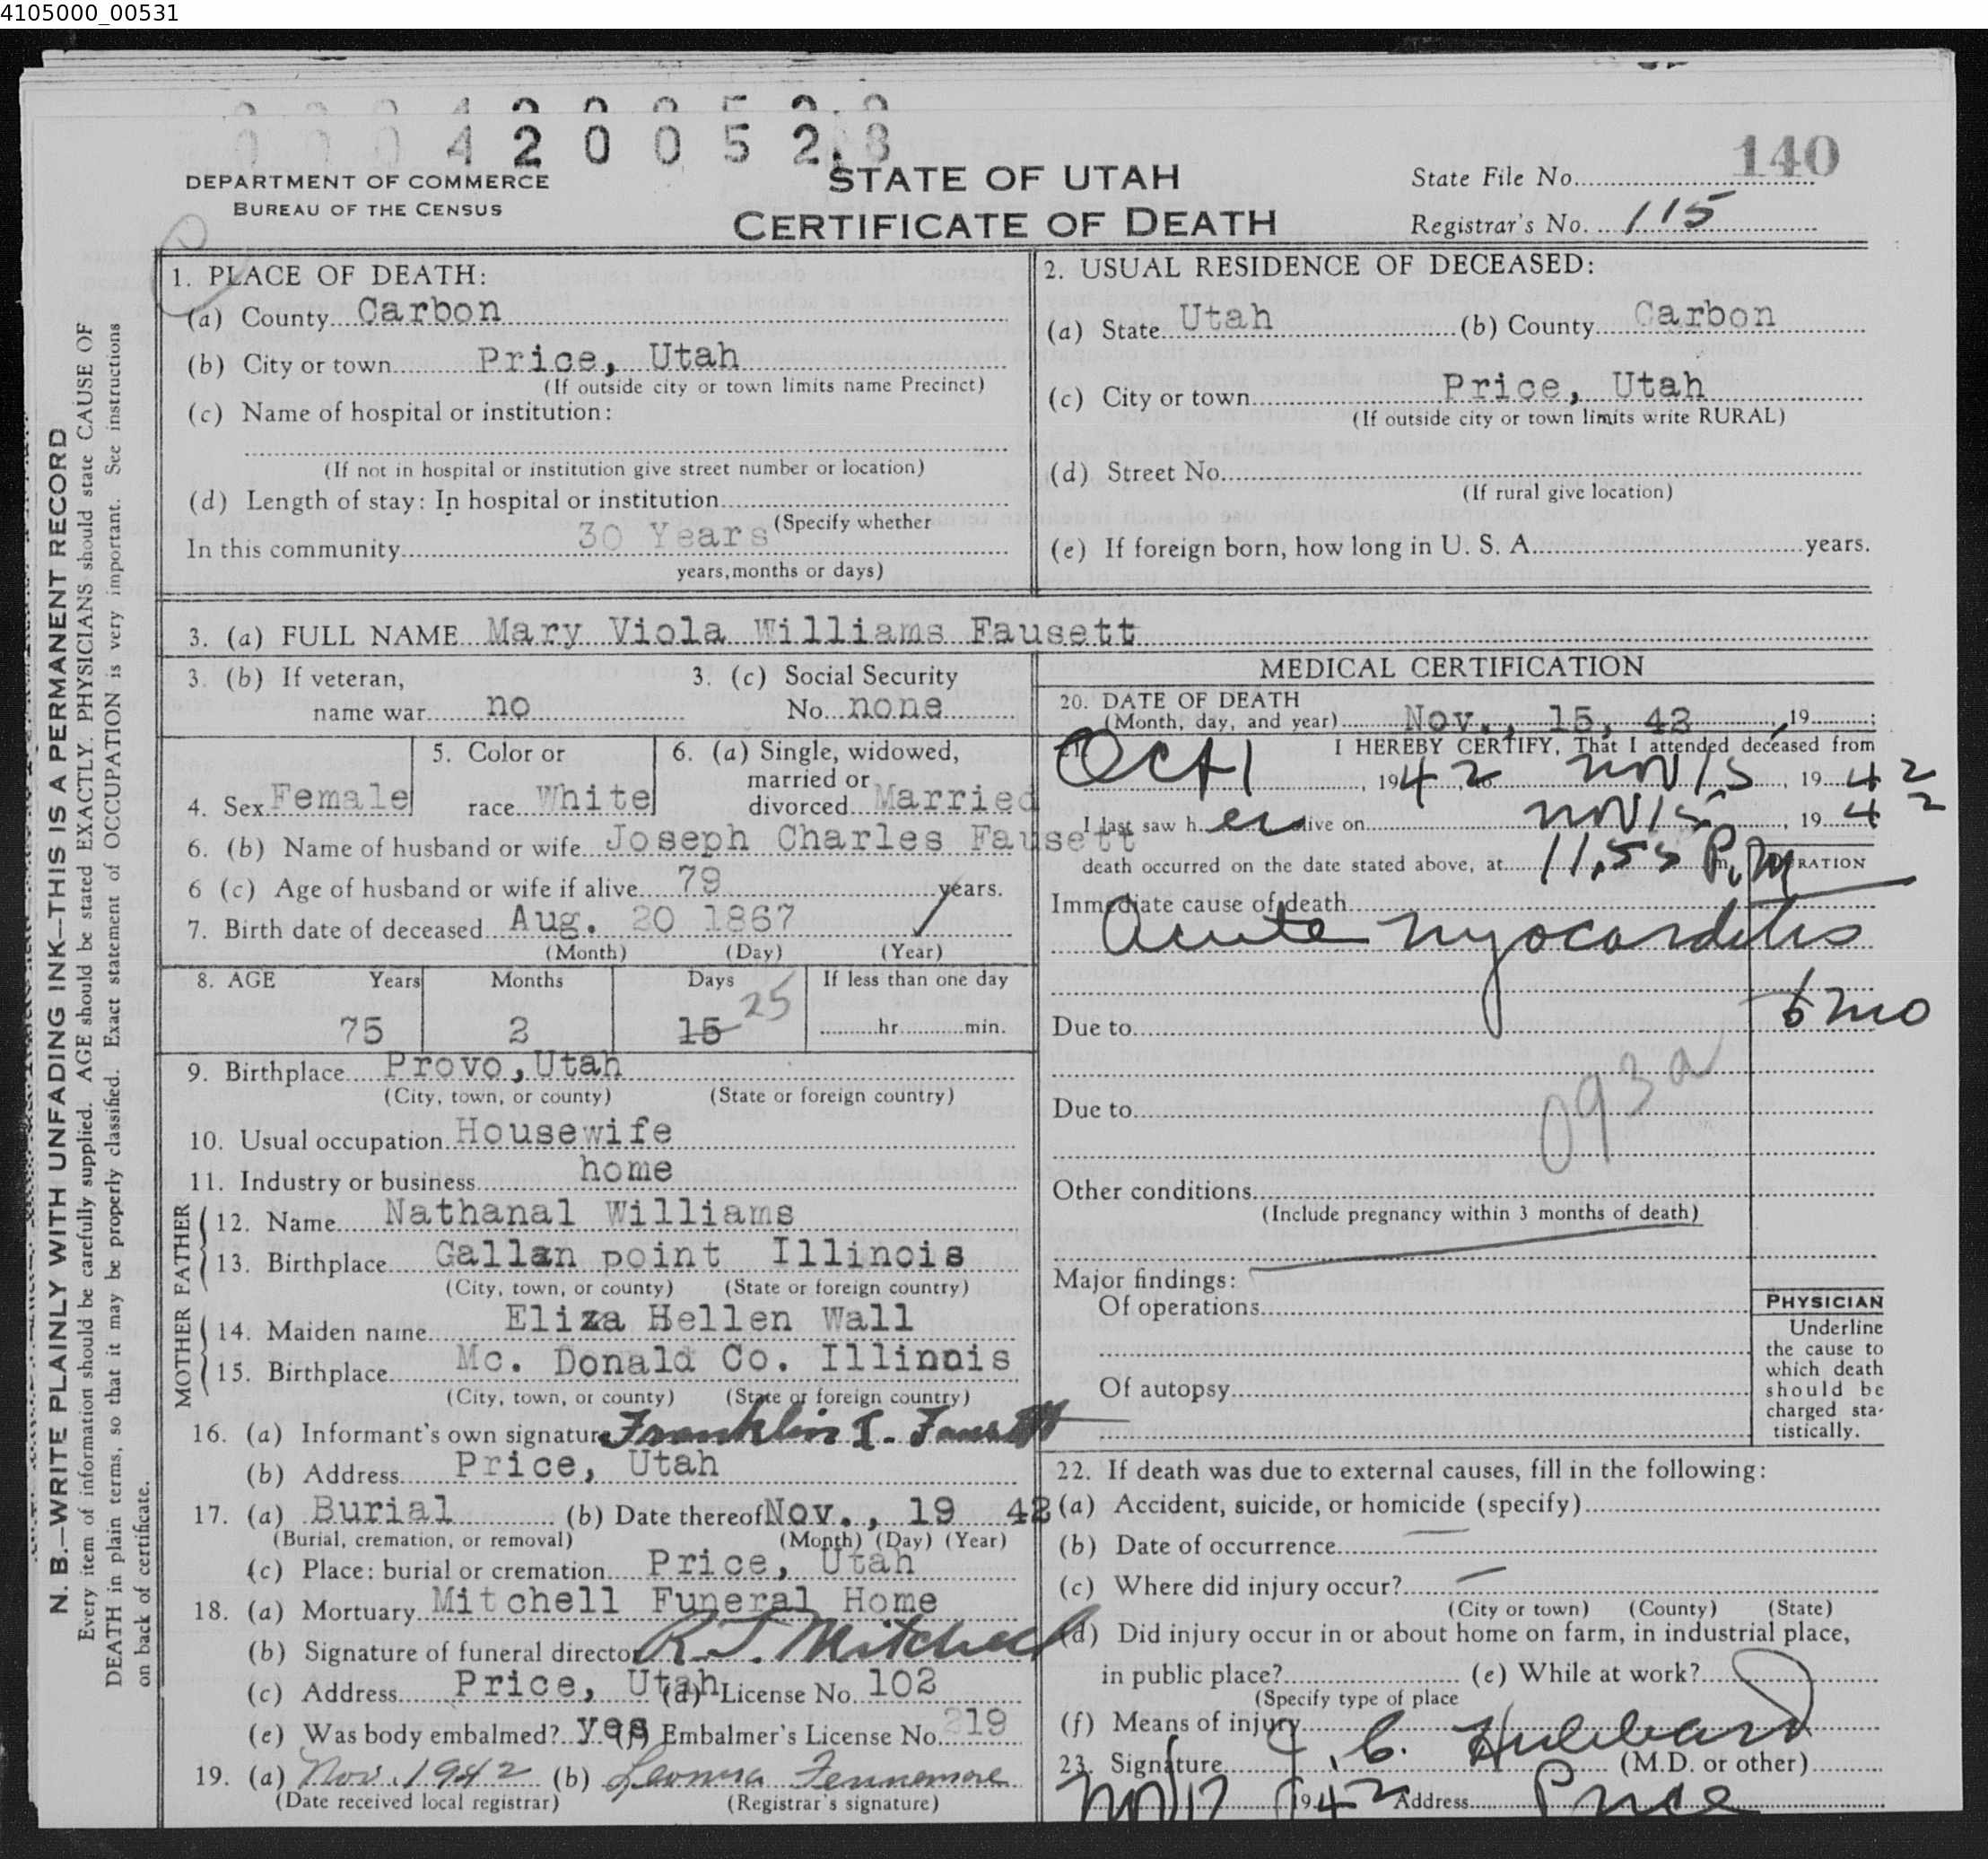 4105000_00531
0 0 0 4 2 0 0 5 2.8
140
DEPARTMENT OF COMMERCE
BUREAU OF THE CENSUS
STATE OF UTAH
CERTIFICATE OF DEATH
State File No.
Registrar's No. 115
N. B.—WRITE PLAINLY WITH UNFADING INK—THIS IS A PERMANENT RECORD
Every item of information should be carefully supplied. AGE should be stated EXACTLY. PHYSICIANS should state CAUSE OF
DEATH in plain terms, so that it may be properly classified. Exact statement of OCCUPATION is very important. See instructions
on back of certificate.
1. PLACE OF DEATH:
(a) County Carbon
(b) City or town Price, Utah
(If outside city or town limits name Precinct)
(c) Name of hospital or institution:
(If not in hospital or institution give street number or location)
(d) Length of stay: In hospital or institution
(Specify whether
In this community 30 Years
years, months or days)
2. USUAL RESIDENCE OF DECEASED:
(a) State Utah (b) County Carbon
(c) City or town Price, Utah
(If outside city or town limits write RURAL)
(d) Street No.
(If rural give location)
(e) If foreign born, how long in U. S. A. years.
3. (a) FULL NAME Mary Viola Williams Fausett
3. (b) If veteran,
name war no
3. (c) Social Security
No. none
4. Sex Female
5. Color or
race White
6. (a) Single, widowed,
married or
divorced Married
6. (b) Name of husband or wife Joseph Charles Fausett
6 (c) Age of husband or wife if alive 79 years.
7. Birth date of deceased Aug. 20 1867
(Month) (Day) (Year)
8. AGE Years Months Days If less than one day
75 2 15 25 hr. min.
9. Birthplace Provo, Utah
(City, town, or county) (State or foreign country)
10. Usual occupation Housewife
11. Industry or business home
FATHER
12. Name Nathanal Williams
13. Birthplace Gallan point Illinois
(City, town, or county) (State or foreign country)
MOTHER
14. Maiden name Eliza Hellen Wall
15. Birthplace Mc. Donald Co. Illinois
(City, town, or county) (State or foreign country)
16. (a) Informant's own signature Franklin I. Fausett
(b) Address Price, Utah
17. (a) Burial (b) Date thereof Nov., 19 42
(Burial, cremation, or removal) (Month) (Day) (Year)
(c) Place: burial or cremation Price, Utah
18. (a) Mortuary Mitchell Funeral Home
(b) Signature of funeral director R J. Mitchell
(c) Address Price, Utah (d) License No. 102
(e) Was body embalmed? yes (f) Embalmer's License No. 219
19. (a) Nov. 1942 (b) Leonora Fennemore
(Date received local registrar) (Registrar's signature)
MEDICAL CERTIFICATION
20. DATE OF DEATH
(Month, day, and year) Nov., 15, 42, 19 ;
21. I HEREBY CERTIFY, That I attended deceased from
Oct 1, 1942 to Nov 15, 19 42
I last saw her alive on Nov 15, 19 42
death occurred on the date stated above, at 11,55 P.m. DURATION
Immediate cause of death
Acute myocarditis
6 mo
Due to
093a
Due to
Other conditions
(Include pregnancy within 3 months of death)
Major findings:
Of operations
Of autopsy
PHYSICIAN
Underline
the cause to
which death
should be
charged sta-
tistically.
22. If death was due to external causes, fill in the following:
(a) Accident, suicide, or homicide (specify)
(b) Date of occurrence
(c) Where did injury occur?
(City or town) (County) (State)
(d) Did injury occur in or about home on farm, in industrial place,
in public place? (e) While at work?
(Specify type of place
(f) Means of injury
23. Signature J. C. Hubbard (M.D. or other)
Nov 17 1942 Address Price